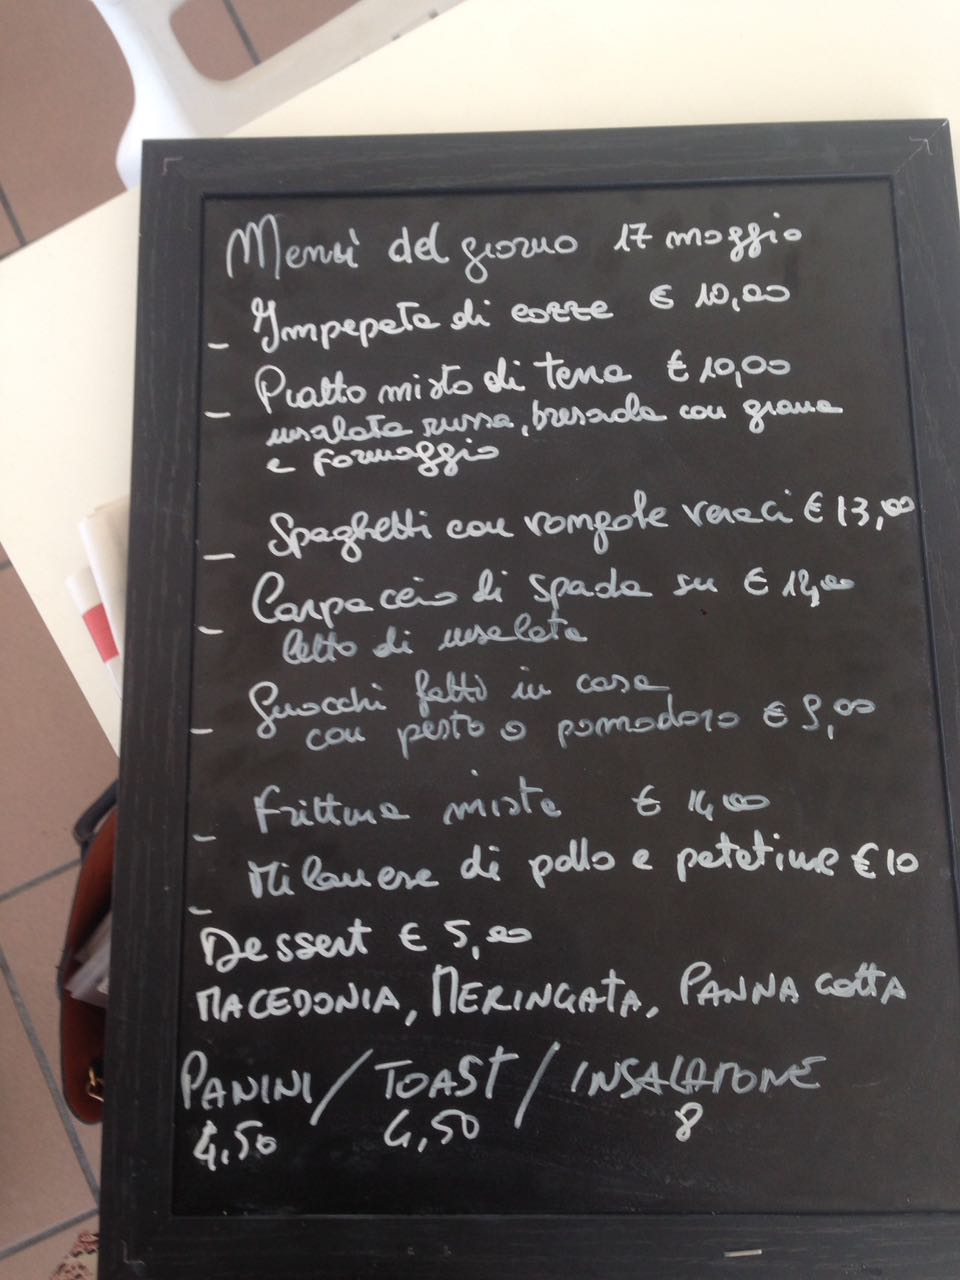 Menù del giorno 17 maggio
- Impepata di cozze € 10,00
- Piatto misto di terra € 10,00
insalata russa, bresaola con grana
e formaggio
- Spaghetti con vongole veraci € 13,00
- Carpaccio di spada su € 12,00
letto di insalata
- Gnocchi fatti in casa
con pesto o pomodoro € 9,00
- Frittura mista € 14,00
- Milanese di pollo e patatine € 10
Dessert € 5,00
MACEDONIA, MERINGATA, PANNA COTTA
PANINI / TOAST / INSALATONE
4,50 4,50 8